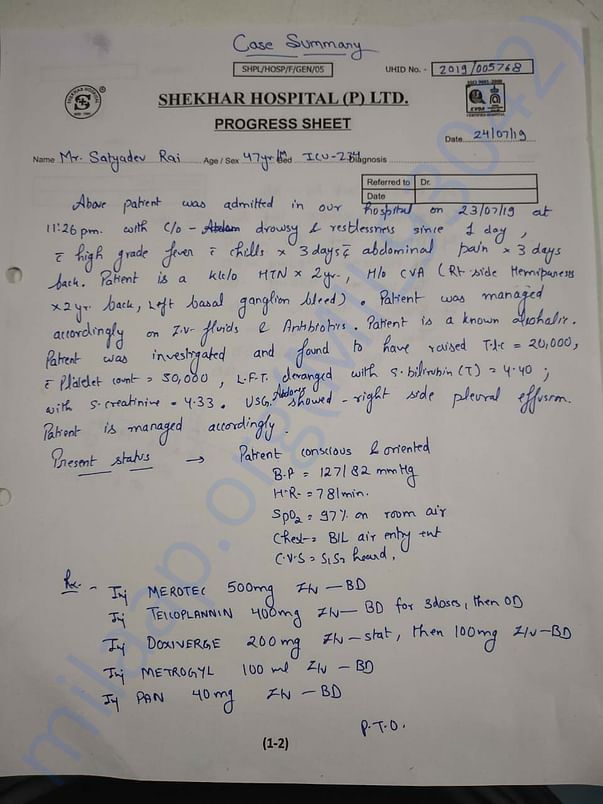 Case Summary
SHPL/HOSP/F/GEN/05
UHID No. - 2019/005768
SHEKHAR HOSPITAL (P) LTD.
PROGRESS SHEET
Date 24/07/19
Name Mr. Satyadev Rai Age / Sex 47yr/M Bed ICU-234 Diagnosis
Referred to Dr.
Date
Above patient was admitted in our hospital on 23/07/19 at
11:26 pm. with C/o - drowsy & restlessness since 1 day,
c̄ high grade fever c̄ chills x 3 days c̄ abdominal pain x 3 days
back. Patient is a k/c/o HTN x 2yr., H/o CVA (Rt side Hemiparesis
x 2 yr. back, Left basal ganglion bleed). Patient was managed
accordingly on I.V. fluids & Antibiotics. Patient is a known alcoholic.
Patient was investigated and found to have raised T.L.C = 20,000,
c̄ Platelet count = 50,000, L.F.T. deranged with S. bilirubin (T) = 4.40;
with S. creatinine = 4.33. USG. showed - right side pleural effusion.
Patient is managed accordingly.
Present status → Patient conscious & oriented
B.P = 127/82 mmHg
H.R. = 78/min.
SpO2 = 97% on room air
Chest = B/L air entry
C.V.S = S1S2 heard.
Rx. - Inj MEROTEC 500mg I/V - BD
Inj TEICOPLANNIN 400mg I/V - BD for 3doses, then OD
Inj DOXIVERGE 200 mg I/V - stat, then 100mg I/V - BD
Inj METROGYL 100 ml I/V - BD
Inj PAN 40 mg I/V - BD
P.T.O.
(1-2)